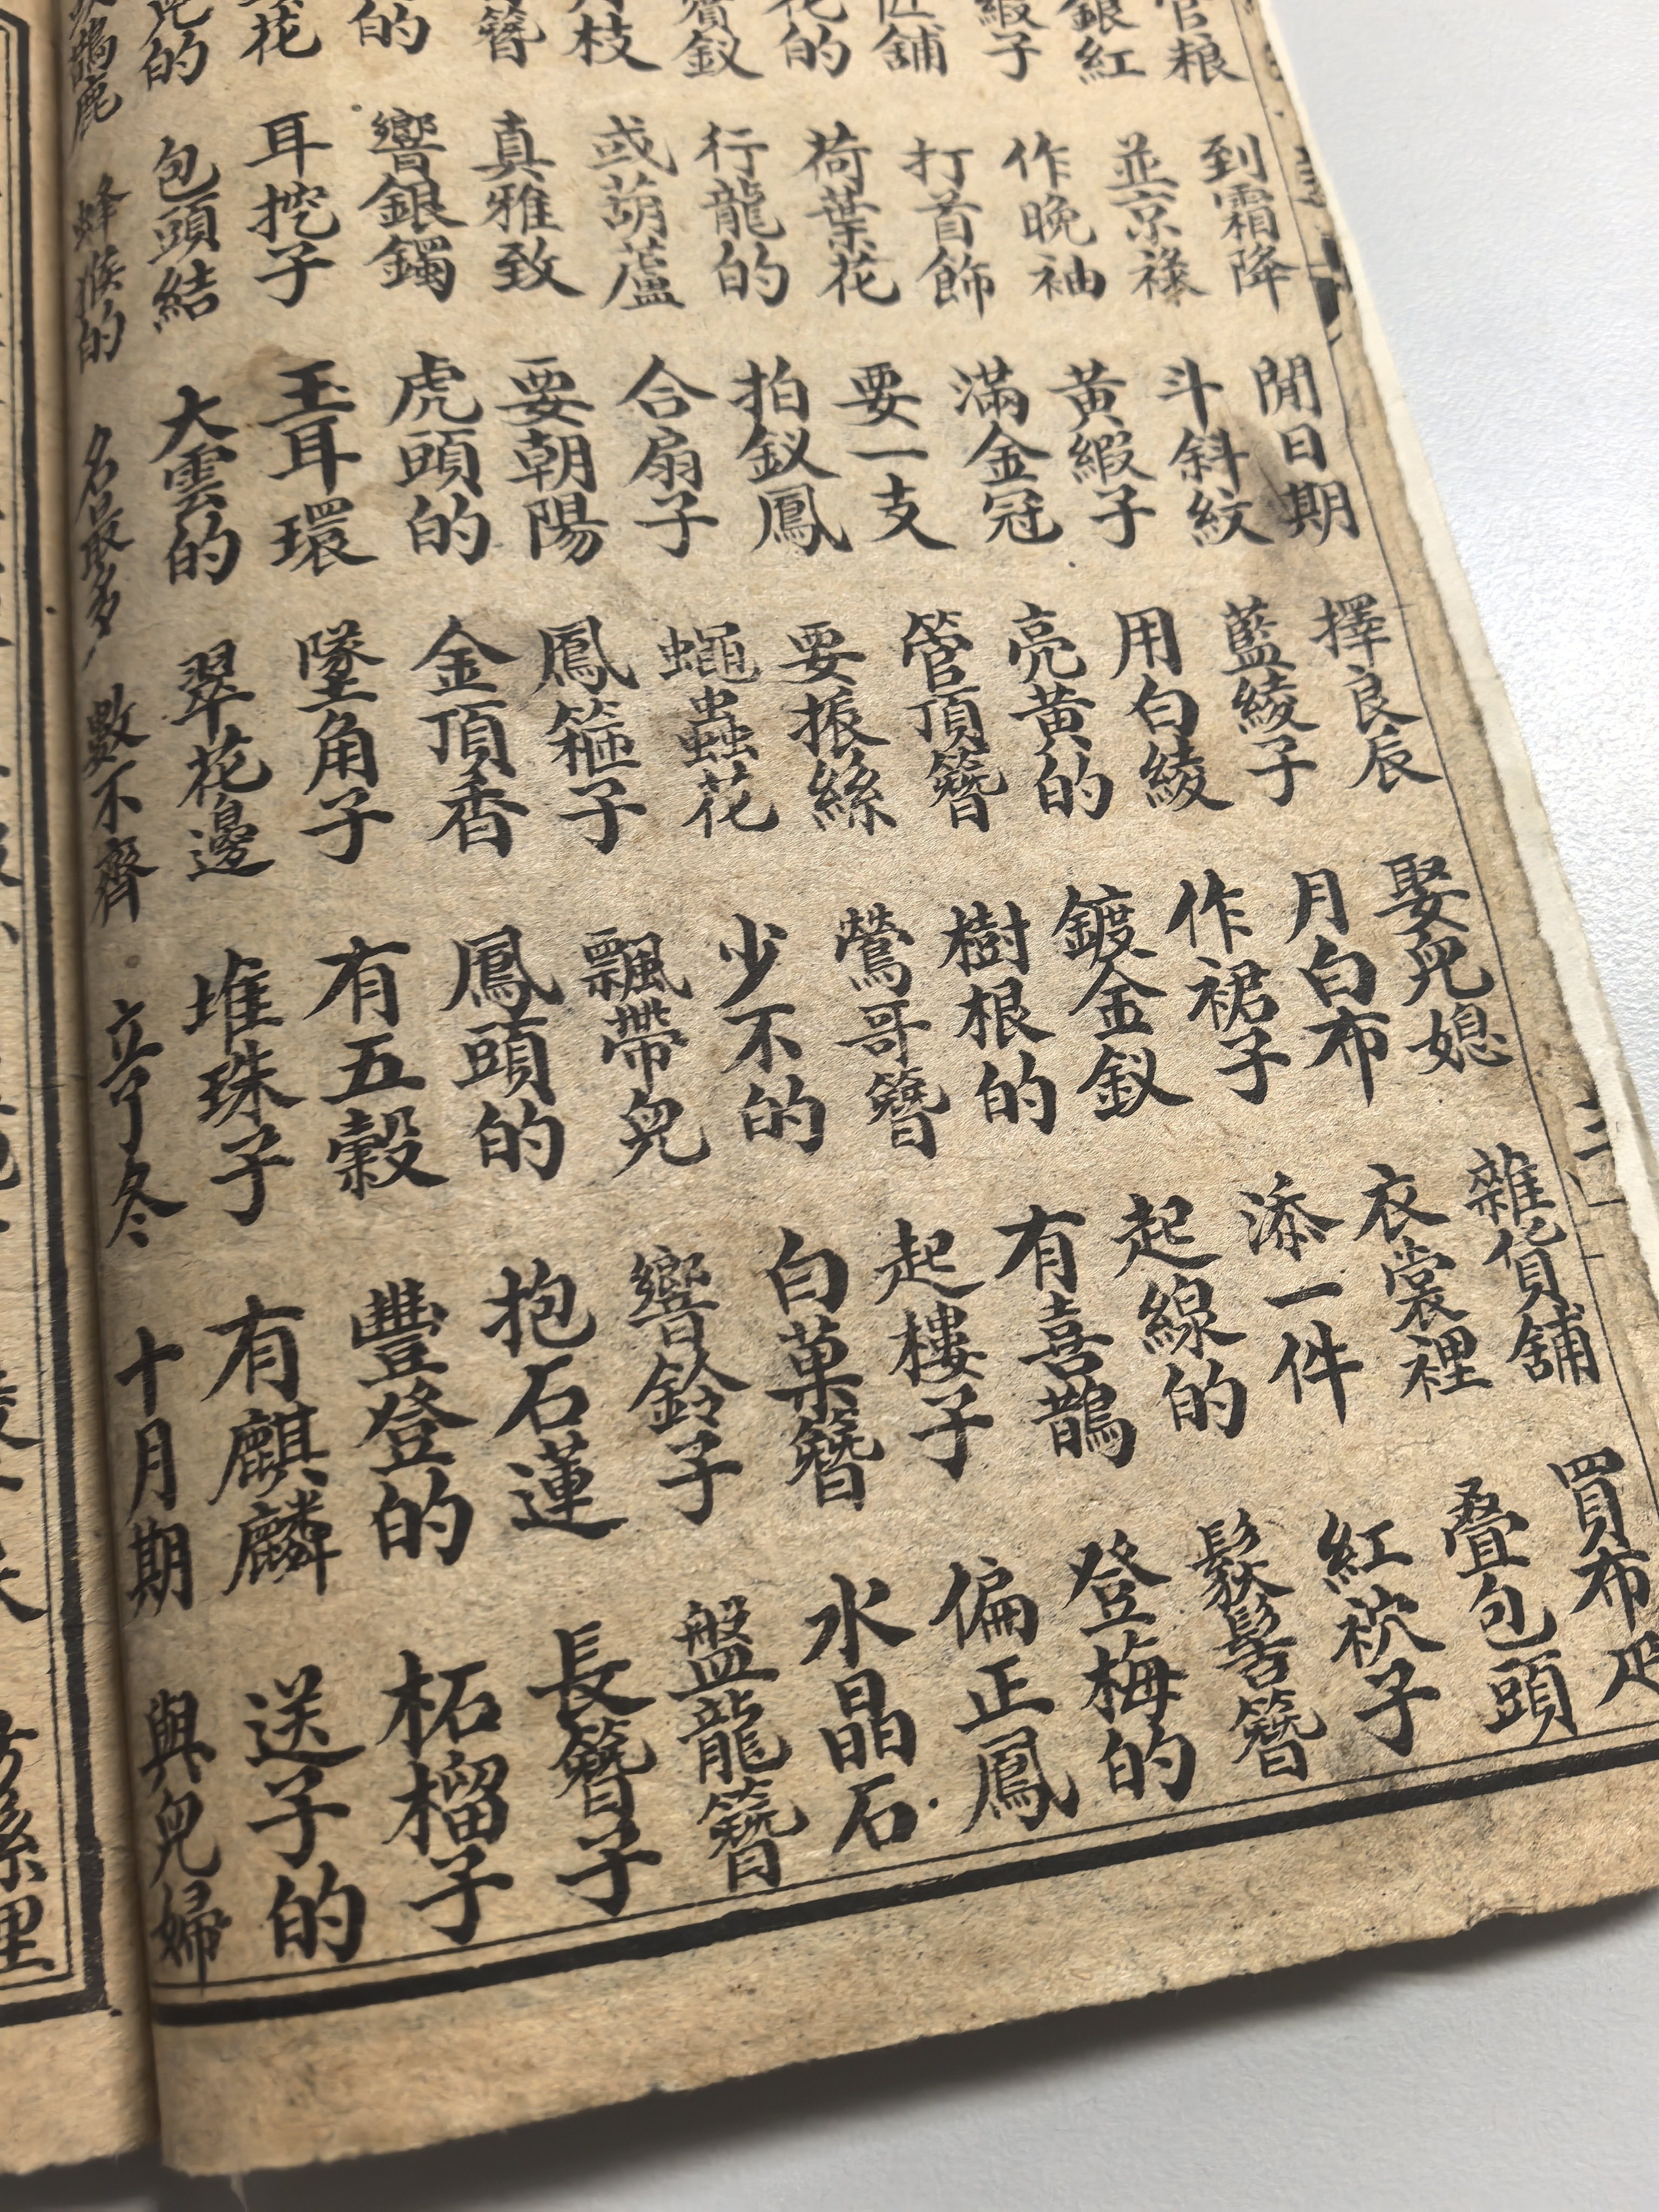 官粮 到霜降 閒日期 擇良辰 娶兒媳 雜貨舖 買布疋
銀紅 並京祿 斗斜紋 藍綾子 月白布 衣裳裡 叠包頭
緞子 作晚袖 黄緞子 用白綾 作裙子 添一件 紅子
舖 打首飾 滿金冠 亮黄的 鍍金釵 起線的 鬏髻簪
花的 荷葉花 要一支 管頂簪 樹根的 有喜鵲 登梅的
釵 行龍的 拍釵鳳 要振絲 鶯哥簪 起樓子 偏正鳳
枝 或葫蘆 合扇子 蠅蟲花 少不的 白菓簪 水晶石
簪 真雅致 要朝陽 鳳箍子 飄帶兒 響鈴子 盤龍簪
的 響銀鐲 虎頭的 金頂香 鳳頭的 抱石蓮 長簪子
花 耳挖子 玉耳環 墜角子 有五穀 豐登的 柘榴子
兒的 包頭結 大雲的 翠花邊 堆珠子 有麒麟 送子的
鹿 蜂猴的 名最多 數不齊 立了冬 十月期 與兒婦